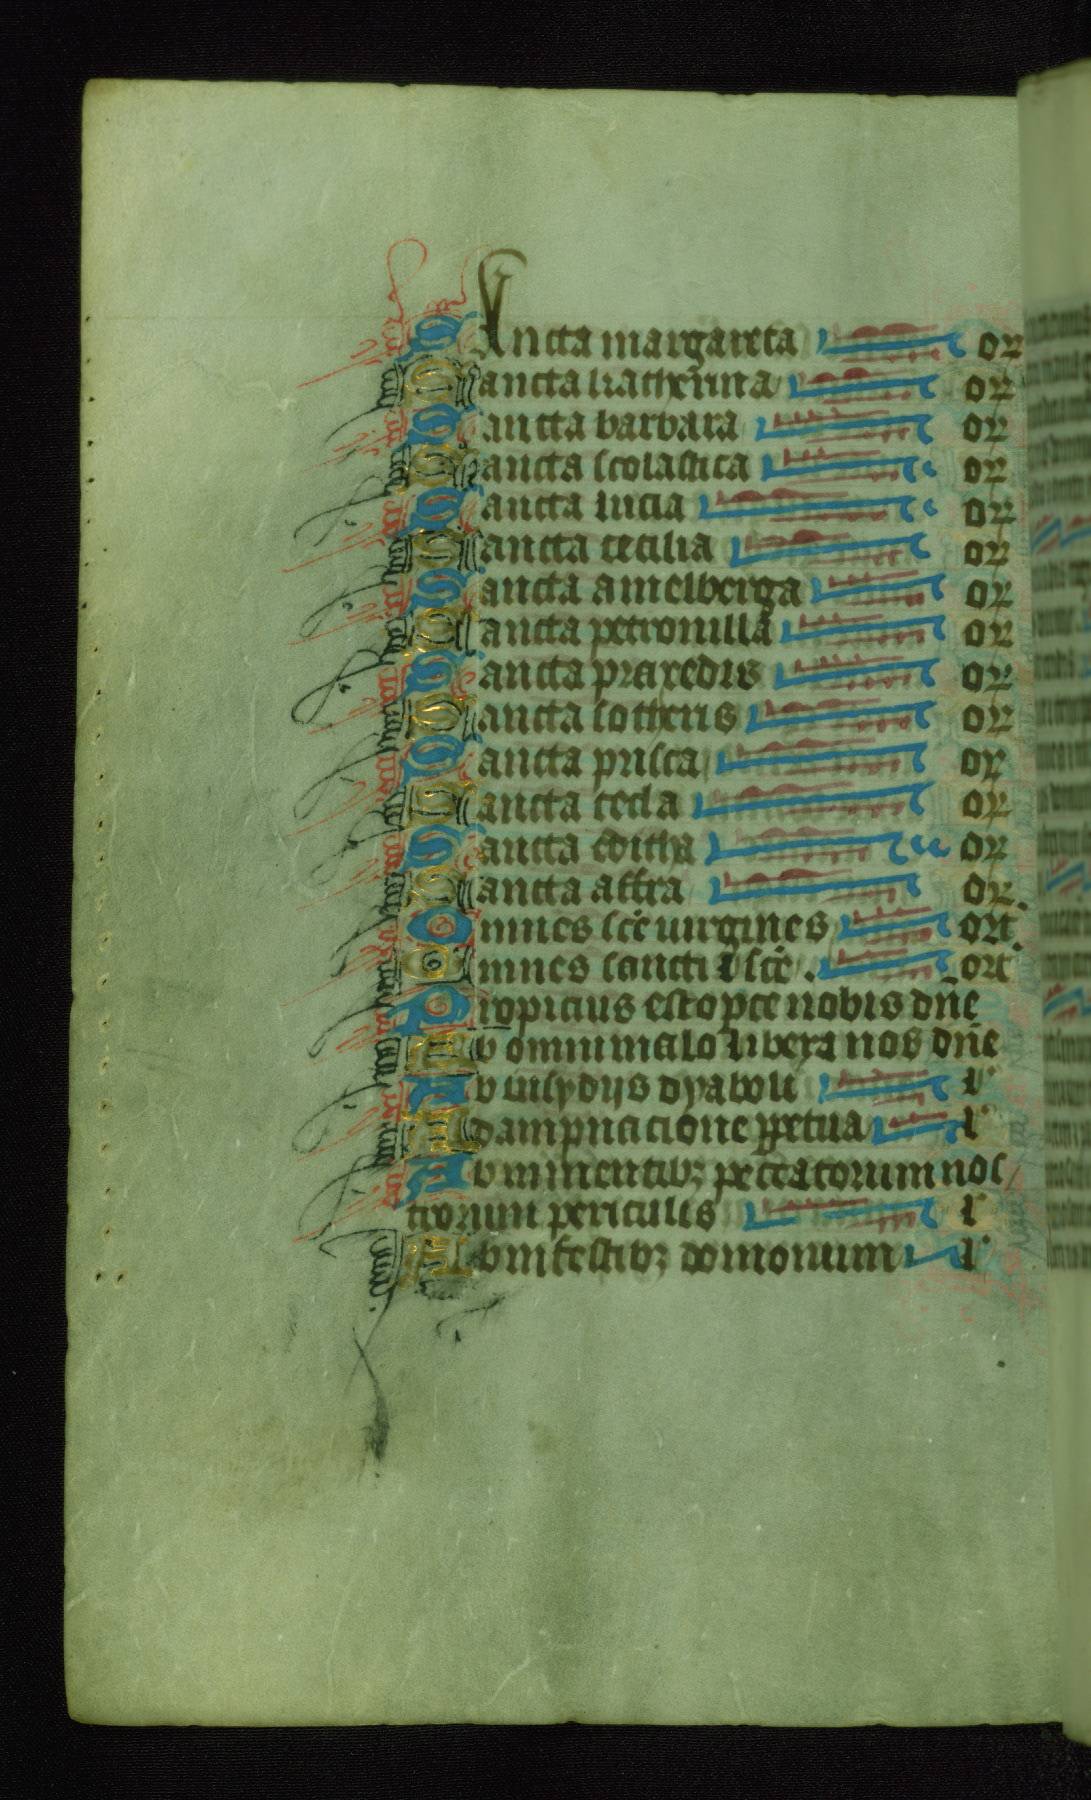 Sancta margareta or
Sancta katherina or
Sancta barbara or
Sancta scolastica or
Sancta lucia or
Sancta cecilia or
Sancta amelberga or
Sancta petronilla or
Sancta praxedis or
Sancta sotheris or
Sancta prisca or
Sancta tecla or
Sancta editha or
Sancta affra or
Omnes sce uirgines ort
Omnes sancti ⁊ sce ort
Propicius esto pce nobis dne
Ab omni malo libera nos dne
Ab insydijs dyaboli l
A dampnacione ppetua l
Ab iminentibz peccatorum nos
trorum periculis l
Ab infestibz domonum l